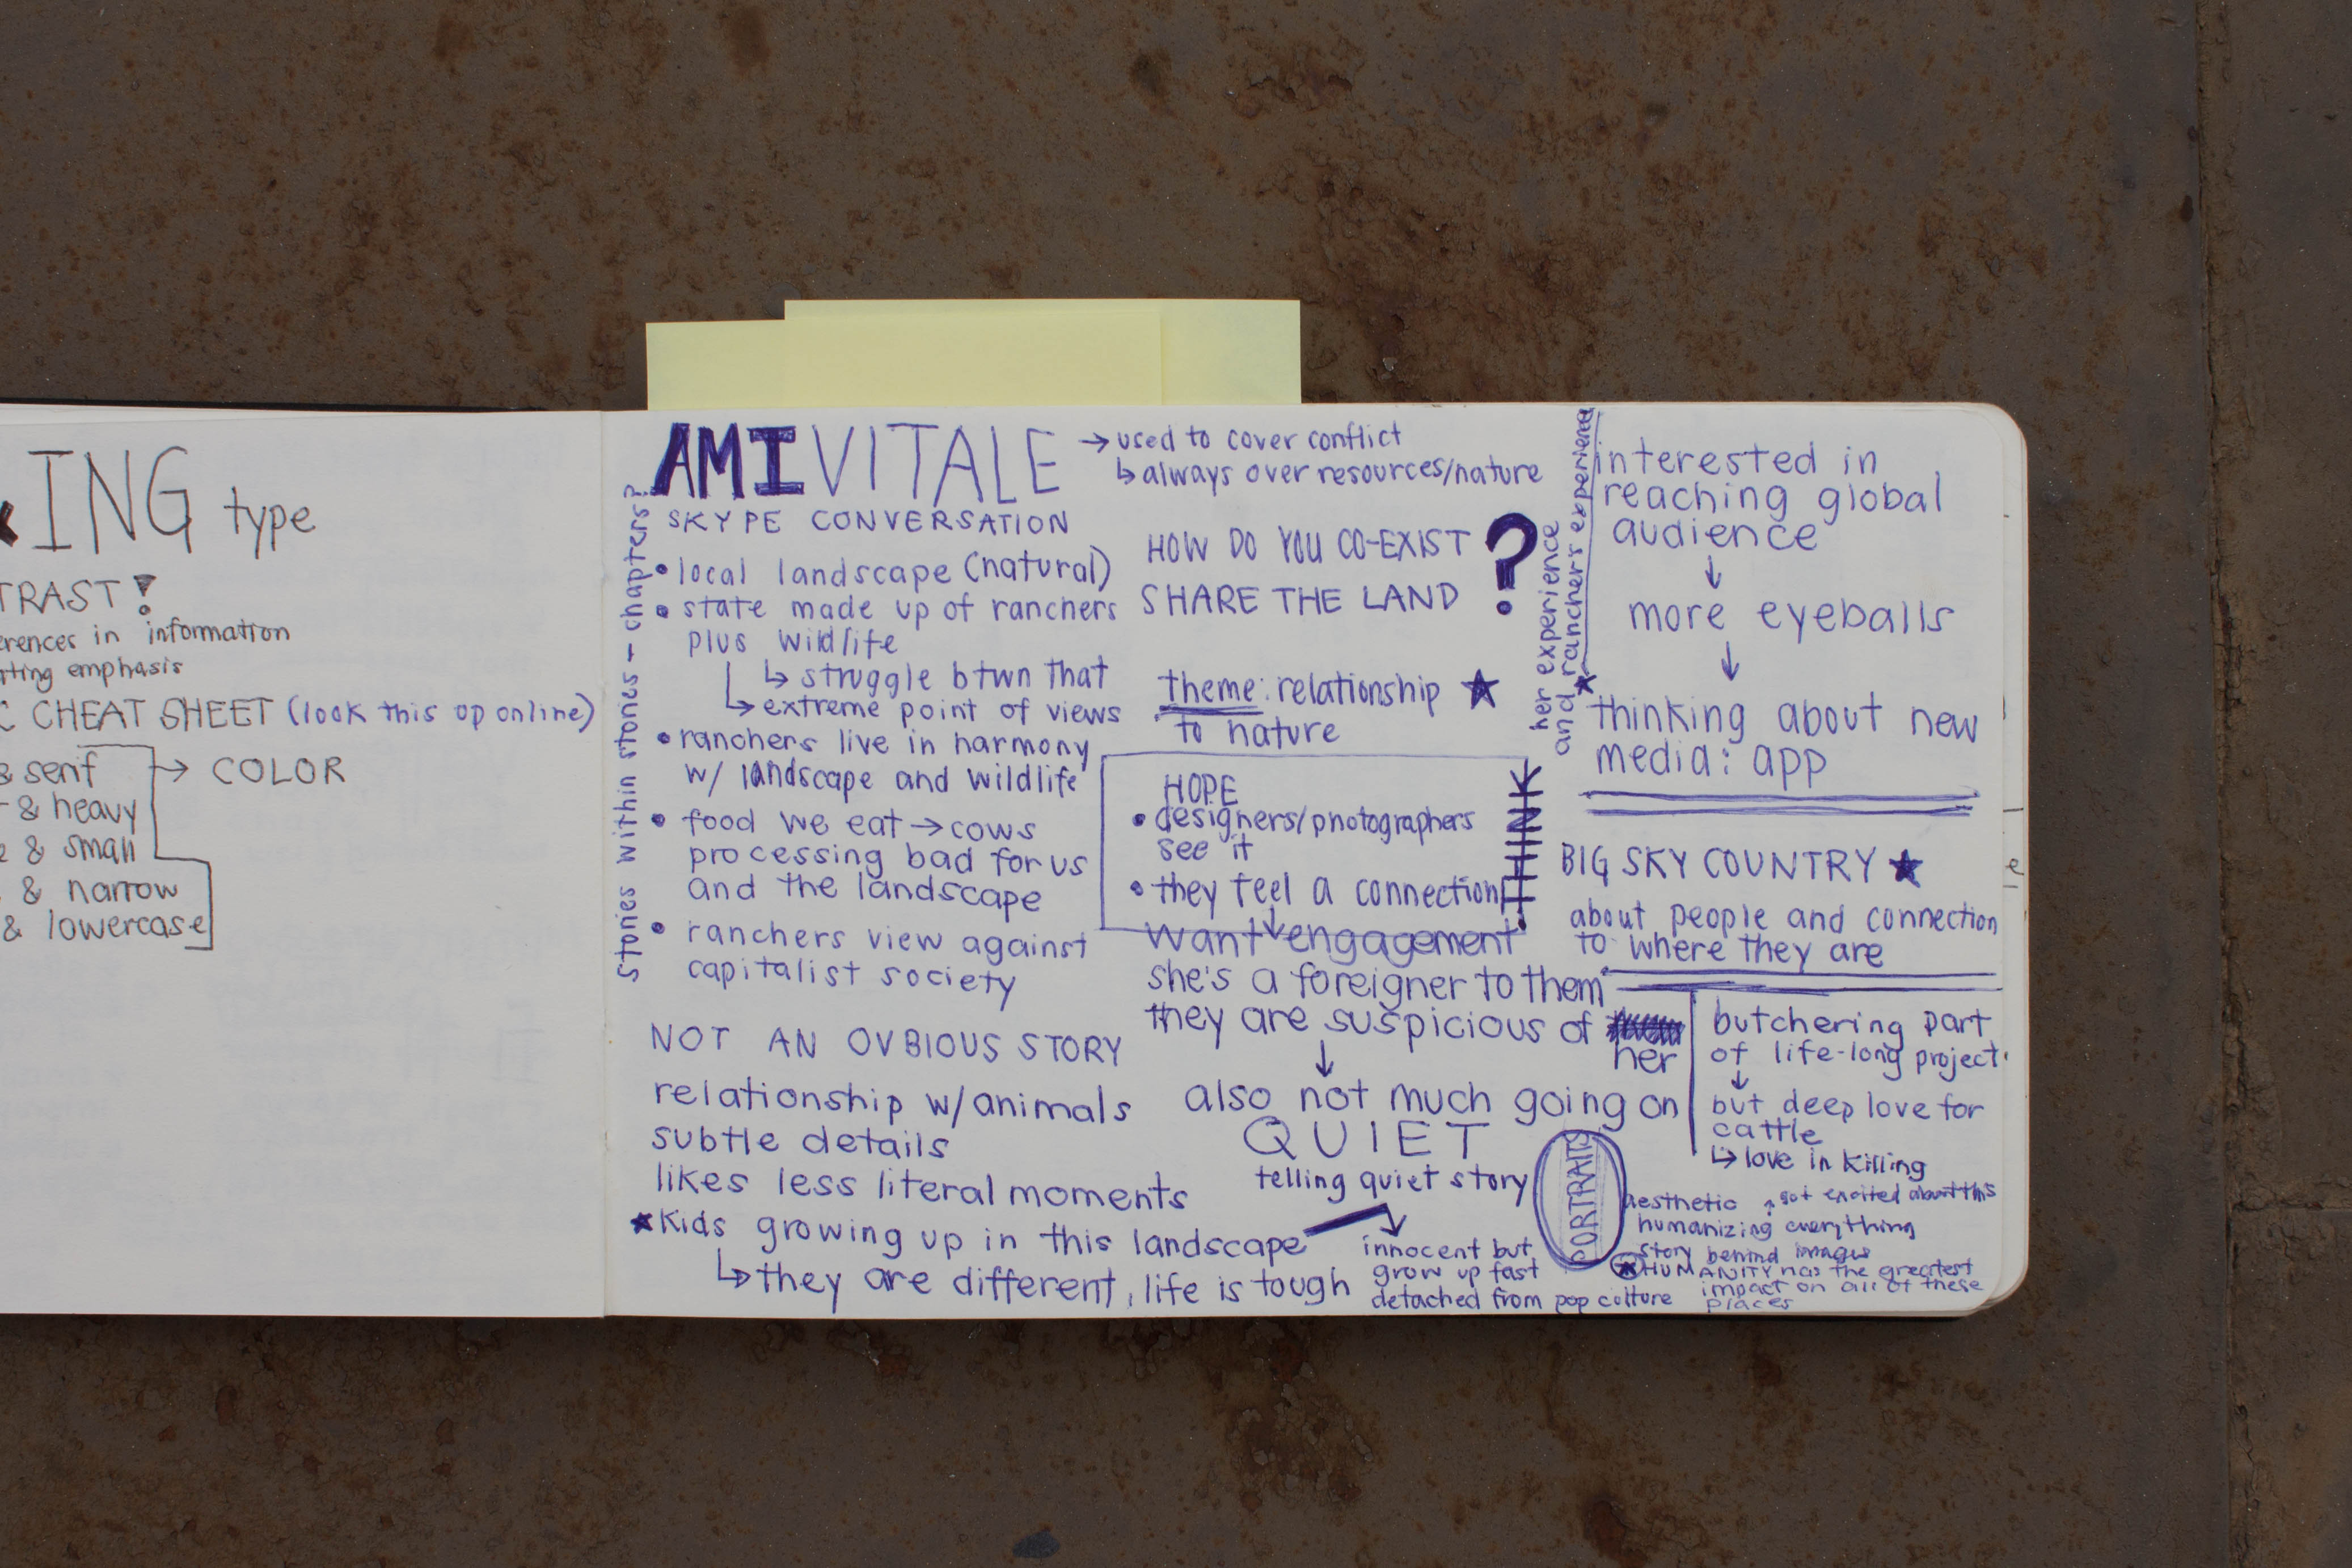 ING type
TRAST!
erences in information
ting emphasis
C CHEAT SHEET (look this up online)
& serif → COLOR
& heavy
& small
& narrow
& lowercase
stories within stories - chapters?
AMI VITALE
SKYPE CONVERSATION
• local landscape (natural)
• state made up of ranchers
plus wildlife
↳ struggle btwn that
↳ extreme point of views
• ranchers live in harmony
w/ landscape and wildlife
• food we eat → cows
processing bad for us
and the landscape
• ranchers view against
capitalist society
NOT AN OVBIOUS STORY
relationship w/ animals
subtle details
likes less literal moments
★ Kids growing up in this landscape
↳ they are different, life is tough
→ used to cover conflict
↳ always over resources/nature
HOW DO YOU CO-EXIST
SHARE THE LAND ?
theme: relationship ★
to nature
HOPE
• designers/photographers
see it
• they feel a connection
THINK
↓
want engagement
she's a foreigner to them
they are suspicious of
her
↓
also not much going on
QUIET
telling quiet story
innocent but
grow up fast
detached from pop culture
PORTRAITS
her experience
and ranchers experience
★
interested in
reaching global
audience
↓
more eyeballs
↓
thinking about new
media: app
BIG SKY COUNTRY ★
about people and connection
to where they are
butchering part
of life-long project
↓
but deep love for
cattle
↳ love in killing
aesthetic ↑ got excited about this
humanizing everything
story behind images
★ HUMANITY has the greatest
impact on all of these
places
e